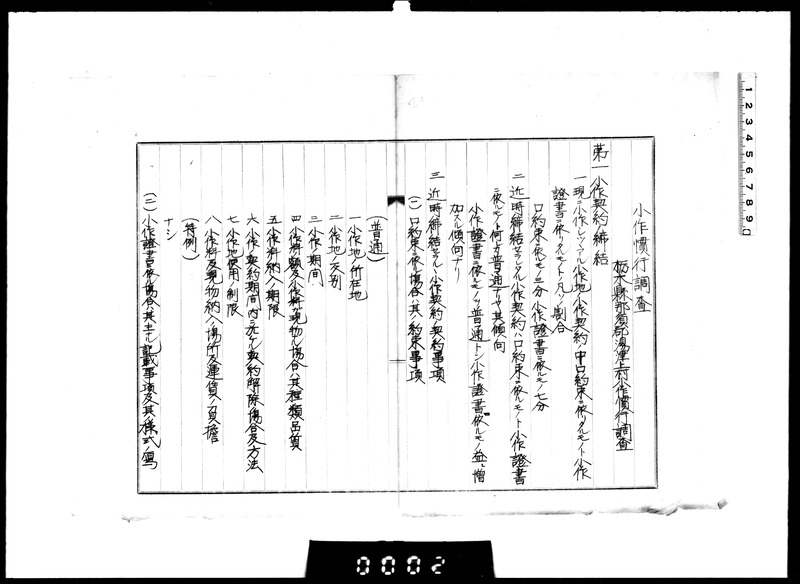 小作慣行調査
栃木縣那須郡湯津上村小作慣行調査
第一 小作契約ノ締結
一 現ニ小作シツツアル小作地小作契約ノ中口約束ニ依リタルモノト小作
證書ニ依リタルモノトノ凡ソノ割合
口約束ニ依ルモノ三分小作證書ニ依ルモノ七分
二 近時締結セラレタル小作契約ハ口約束ニ依ルモノト小作證書
ニ依ルモノト何カ普通ナリヤ其傾向
小作證書ニ依ルモノヲ普通トシ小作證書ニ依ルモノ益々増
加スル傾向ナリ
三 近時締結セラルル小作契約ノ契約事項
(一)口約束ニ依ル場合ハ其ノ約束事項
(普通)
一 小作地ノ所在地
二 小作地ノ反別
三 小作期間
四 小作料額及小作料カ現物ナル場合ハ其種類品質
五 小作料納入ノ期限
六 小作契約期間内ニ於ケル契約解除場合及方法
七 小作地使用ノ制限
八 小作料及現物納入ノ場所及運賃ノ負擔
(特例)
ナシ
(二)小作證書ニ依ル場合ハ其主ナル記載事項及其樣式ノ寫
1 2 3 4 5 6 7 8 9
0002